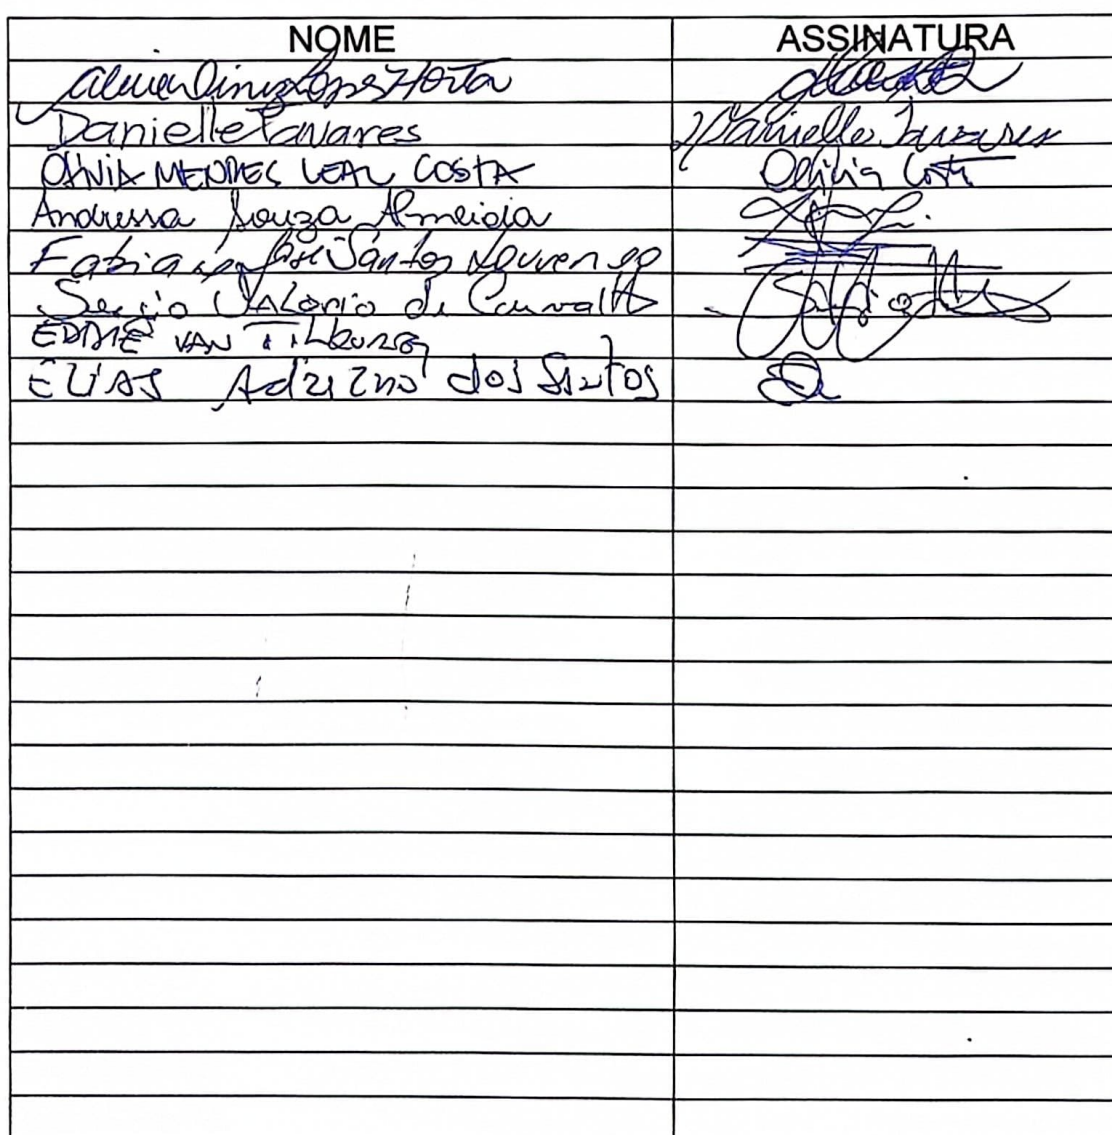 NOME ASSINATURA
Diniz Lopes Horta
Danielle Tavares Danielle Tavares
OLÍVIA MENDES LEAL COSTA Olívia Costa
Andressa Souza Almeida
Fabiano José Santos Lourenço
Sergio Valorio de Carvalho
EDDIE VAN TILBURG
ELIAS Adriano dos Santos